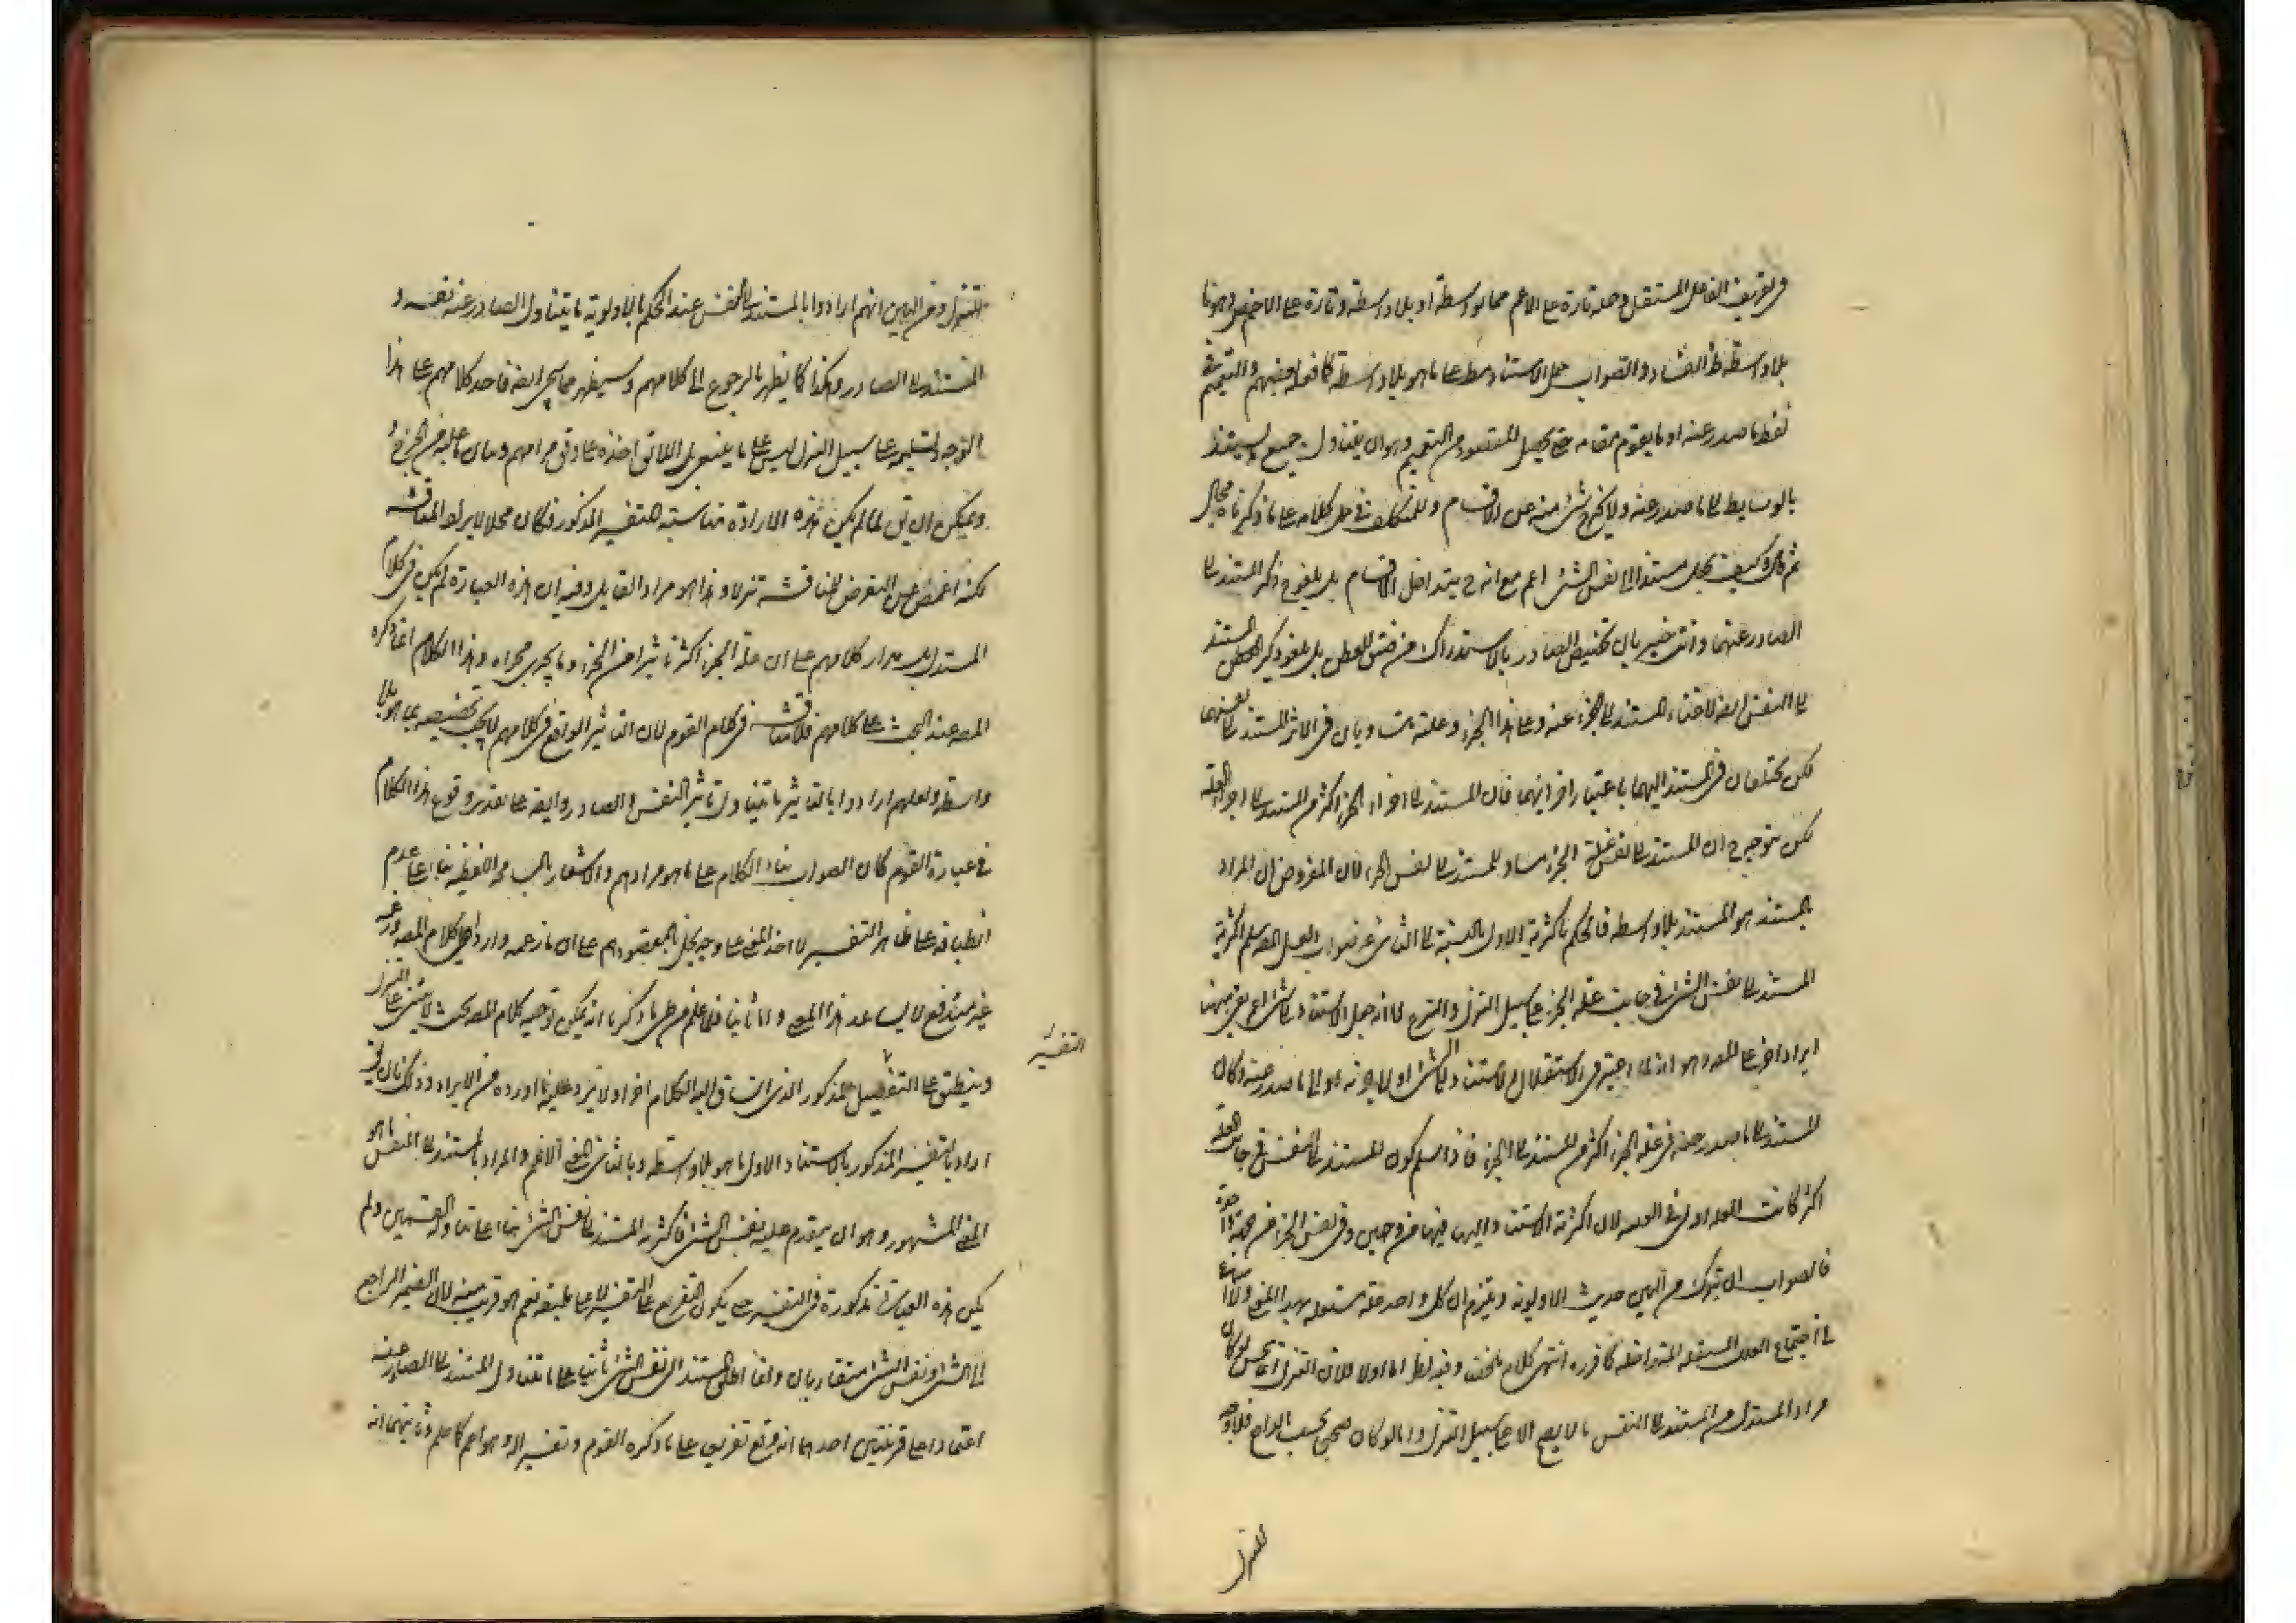 في تعريف الفاعل المستقل وحمله تارة على الاعم مما بواسطة او بلا واسطة وتارة على الاخص وهو ما
بلا واسطة ظ الفساد والصواب حمل الاستناد مط على ما هو بلا واسطة كما فعله بعضهم والتعميم في
لفظ ما صدر عنه او ما يقوم مقامه حتى يحصل المقصود من التعميم وهو ان يتناول جميع
بالوسايط الى ما صدر عنه ولا يخرج شئ منه عن الاقسام وللتكلف في حمل كلامه على ما ذكرناه مجال
ثم قال وكيف يجعل مستندا الى نفس الشئ اعم مع انه ح يتداخل الاقسام بل يلغو ح ذكر المستند الى
الصادر عنهما وانت خبير بان تخصيص الصادر بالاستدراك من ضيق العطن بل يلغو ذكر المستند
الى النفس ايضا لاغناء المستند الى الجزء عنه وعلى هذا الجزء وعلته متساويان في الاثر المستند الى نفسهما
لكن يختلفان في المستند اليهما باعتبار اجزائهما فان المستند الى اجزاء الجزء اكثر من المستند الى اجزاء العلة
لكن يتوجه ح ان المستند الى نفس علة الجزء مساو للمستند الى نفس الجزء لان المفروض ان المراد
بالمستند هو المستند بلا واسطة فالحكم باكثرية الاول بالنسبة الى الثاني غير صواب
المستند الى نفس الشئ في جانب علة الجزء على سبيل التنزل والتبرع
ايراد اخر على المصـ وهو انه
المستند الى ما صدر عنه في علة الجزء اكثر من المستند الى الجزء فاذا سلم كون المستند الى النفس في جانب العلة
اكثر كانت العلة اولى في العلية لان اكثرية الاستناد اليها فيها من وجهين وفي نفس الجزء من جهة واحدة
فالصواب ان يترك من البين حديث الاولوية ويلتزم ان كل واحد علة مستقلة بهذا المعنى
في اجتماع العلل المستقلة المتداخلة كما قرره انتهى كلامه ملخصا وفيه نظر اما اولا فلان التنزل انما يحسن لو كان
مراد المستدل من المستند الى النفس ما لا يصح الا على سبيل التنزل واما لو كان صحيحا بحسب الواقع فلا وجه
للتنزل
للتنزل ومن البين انهم ارادوا بالمستند الى النفس عند الحكم بالاولوية ما يتناول الصادر عنه نفسه و
المستند الى الصادر وهكذا كما يظهر بالرجوع الى كلامهم وسيظهر مما سيجئ ايضا فاحد كلامهم على هذا
الوجه وتسليمه على سبيل التنزل ليس على ما ينبغي بل اللائق اخذه على وفق مرامهم وبيان ما عليه من الجرح
ويمكن ان يق لما لم يكن هذه الارادة مناسبة للتفسير المذكور فكان محلا لايراد المناقشة
لكنه اغمض عن التعرض للمناقشة تنزلا وهذا هو مراد القايل وفيه ان هذه العبارة لم يكن في كلام
المستدل بل مدار كلامهم على ان علة الجزء اكثر تاثيرا من الجزء وما يجري مجراه وهذا الكلام انما ذكره
المصـ عند البحث على كلامهم فلا مناقشة في كلام القوم لان التاثير الواقع في كلامهم لا يجب تخصيصه بما هو بلا
واسطة ولعلهم ارادوا بالتاثير ما يتناول تاثير النفس والصادر وايضا على تقدير وقوع هذا الكلام
في عبارة القوم كان الصواب بناء الكلام على ما هو مرادهم والاشعار بالمسامحة اللفظية بناء على عدم
انطباقه على ظاهر التفسير لا اخذ المعنى على وجه يخل بمقصودهم على ان ما زعمه واردا على كلام المصـ
غير مندفع لا يساعد هذا المعنى واما ثانيا فلما علم من طي ما ذكرنا انه يمكن توجيه كلام المصـ بحيث لا يبتنى على التنزل
وينطبق على التفصيل المذكور الذي انساق اليه الكلام اخرا ولا يرد عليه ما اورده من الايراد وذلك بان يق
اراد بالتفسير المذكور بالاستناد الاول ما هو بلا واسطة وبالثاني المعنى الاعم والمراد بالمستند الى النفس ما هو
المعنى المشهور وهو ان يتقدم عليه نفس الشئ فاكثرية المستند الى نفس الشئ بناء على تناوله القسمين ولم
يكن هذه العبارة مذكورة في التفسير حتى يكون التفريع على التفسير لا على ما يليق نعم هو قريب منه لان الضمير الراجع
الى الشئ ونفس الشئ متقاربان واما اطلق المستند الى نفس الشئ ثانيا على ما يتناول المستند الى الصادر عنه
اعتمادا على قرينتين احدهما انه وقع تفريعا على ما ذكره القوم وتفسيرا له وهو اعم كما علم وثانيهما انه
التفسير